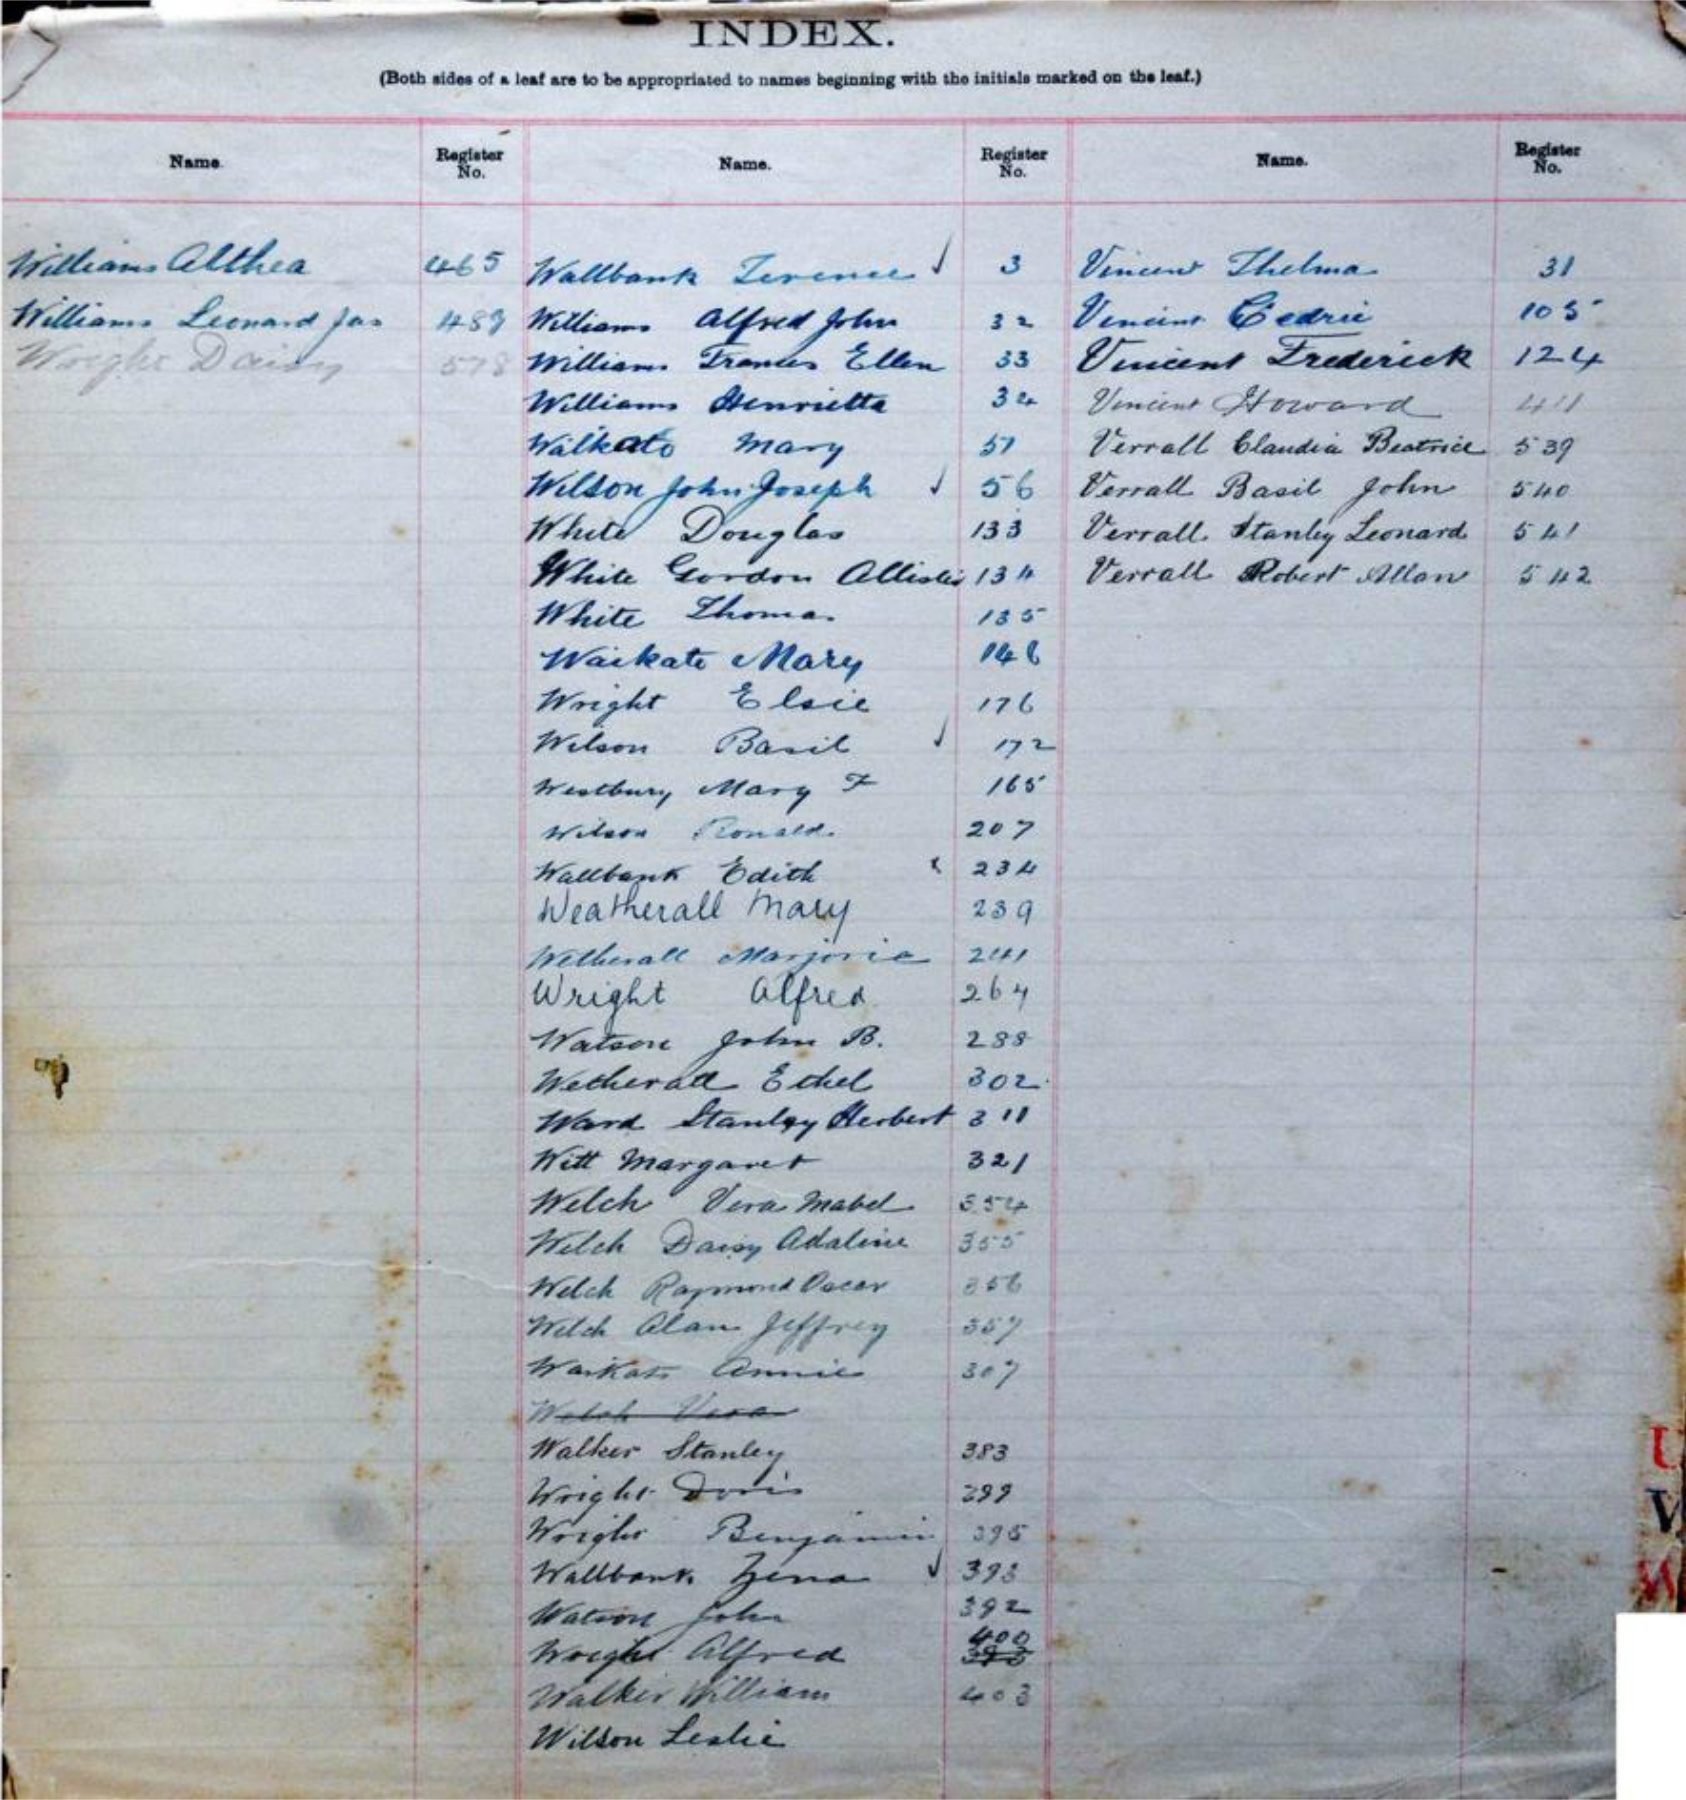 INDEX.
(Both sides of a leaf are to be appropriated to names beginning with the initials marked on the leaf.)
Name. Register No. Name. Register No. Name. Register No.
Williams Althea 465
Williams Leonard Jas 489
Wright Daisy 578
Wallbank Terence ✓ 3
Williams Alfred John 32
Williams Frances Ellen 33
Williams Henrietta 34
Waikato Mary 51
Wilson John Joseph ✓ 56
White Douglas 133
White Gordon Allister 134
White Thomas 135
Waikato Mary 146
Wright Elsie 176
Wilson Basil ✓ 172
Westbury Mary F 165
Wilson Ronald. 207
Wallbank Edith x 234
Weatherall Mary 239
Wetherall Marjorie 241
Wright Alfred 264
Watson John B. 288
Wetherall Ethel 302
Ward Stanley Herbert 311
Witt Margaret 321
Welch Vera Mabel 354
Welch Daisy Adaline 355
Welch Raymond Oscar 356
Welch Alan Jeffrey 357
Waikato Annie 307
Welch Vera
Walker Stanley 383
Wright Doris 399
Wright Benjamin 395
Wallbank Zena ✓ 393
Watson John 392
Wright Alfred 400
Walker William 403
Wilson Leslie
Vincent Thelma 31
Vincent Cedric 105
Vincent Frederick 124
Vincent Howard 411
Verrall Claudia Beatrice 539
Verrall Basil John 540
Verrall Stanley Leonard 541
Verrall Robert Allan 542
U
V
W